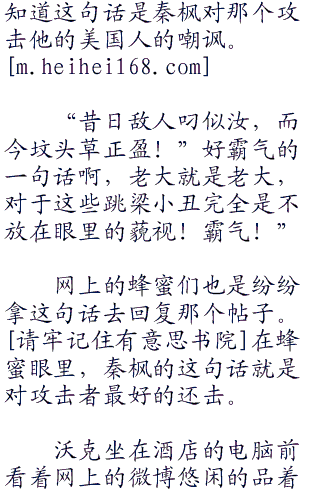 知道这句话是秦枫对那个攻
击他的美国人的嘲讽。
[m.heihei168.com]
“昔日敌人叼似汝，而
今坟头草正盈！”好霸气的
一句话啊，老大就是老大，
对于这些跳梁小丑完全是不
放在眼里的藐视！霸气！”
网上的蜂蜜们也是纷纷
拿这句话去回复那个帖子。
[请牢记住有意思书院]在蜂
蜜眼里，秦枫的这句话就是
对攻击者最好的还击。
沃克坐在酒店的电脑前
看着网上的微博悠闲的品着